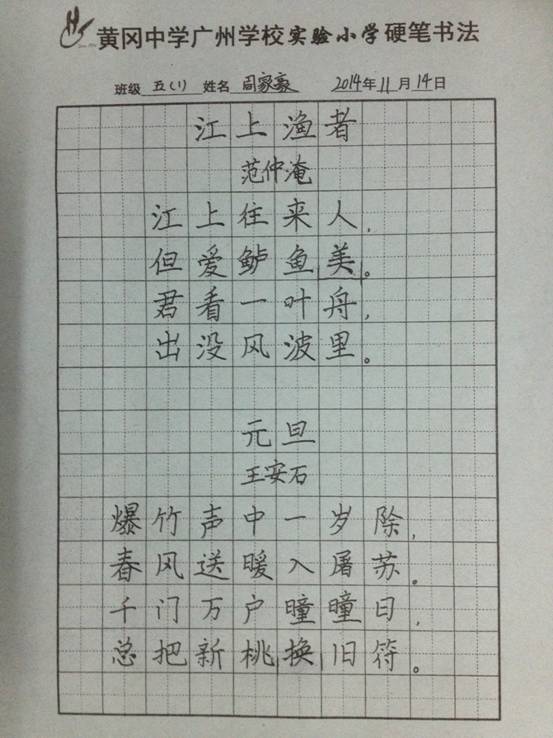 黄冈中学广州学校实验小学硬笔书法
班级 五(1) 姓名 周家豪 2014年11月14日
江上渔者
范仲淹
江上往来人,
但爱鲈鱼美。
君看一叶舟,
出没风波里。
元旦
王安石
爆竹声中一岁除,
春风送暖入屠苏。
千门万户曈曈日,
总把新桃换旧符。